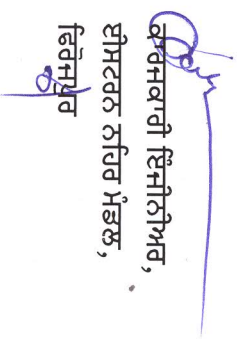 ਕਾਰਜਕਾਰੀ ਇੰਜੀਨੀਅਰ,
ਈਸਟਰਨ ਨਹਿਰ ਮੰਡਲ,
ਫਿਰੋਜਪੁਰ